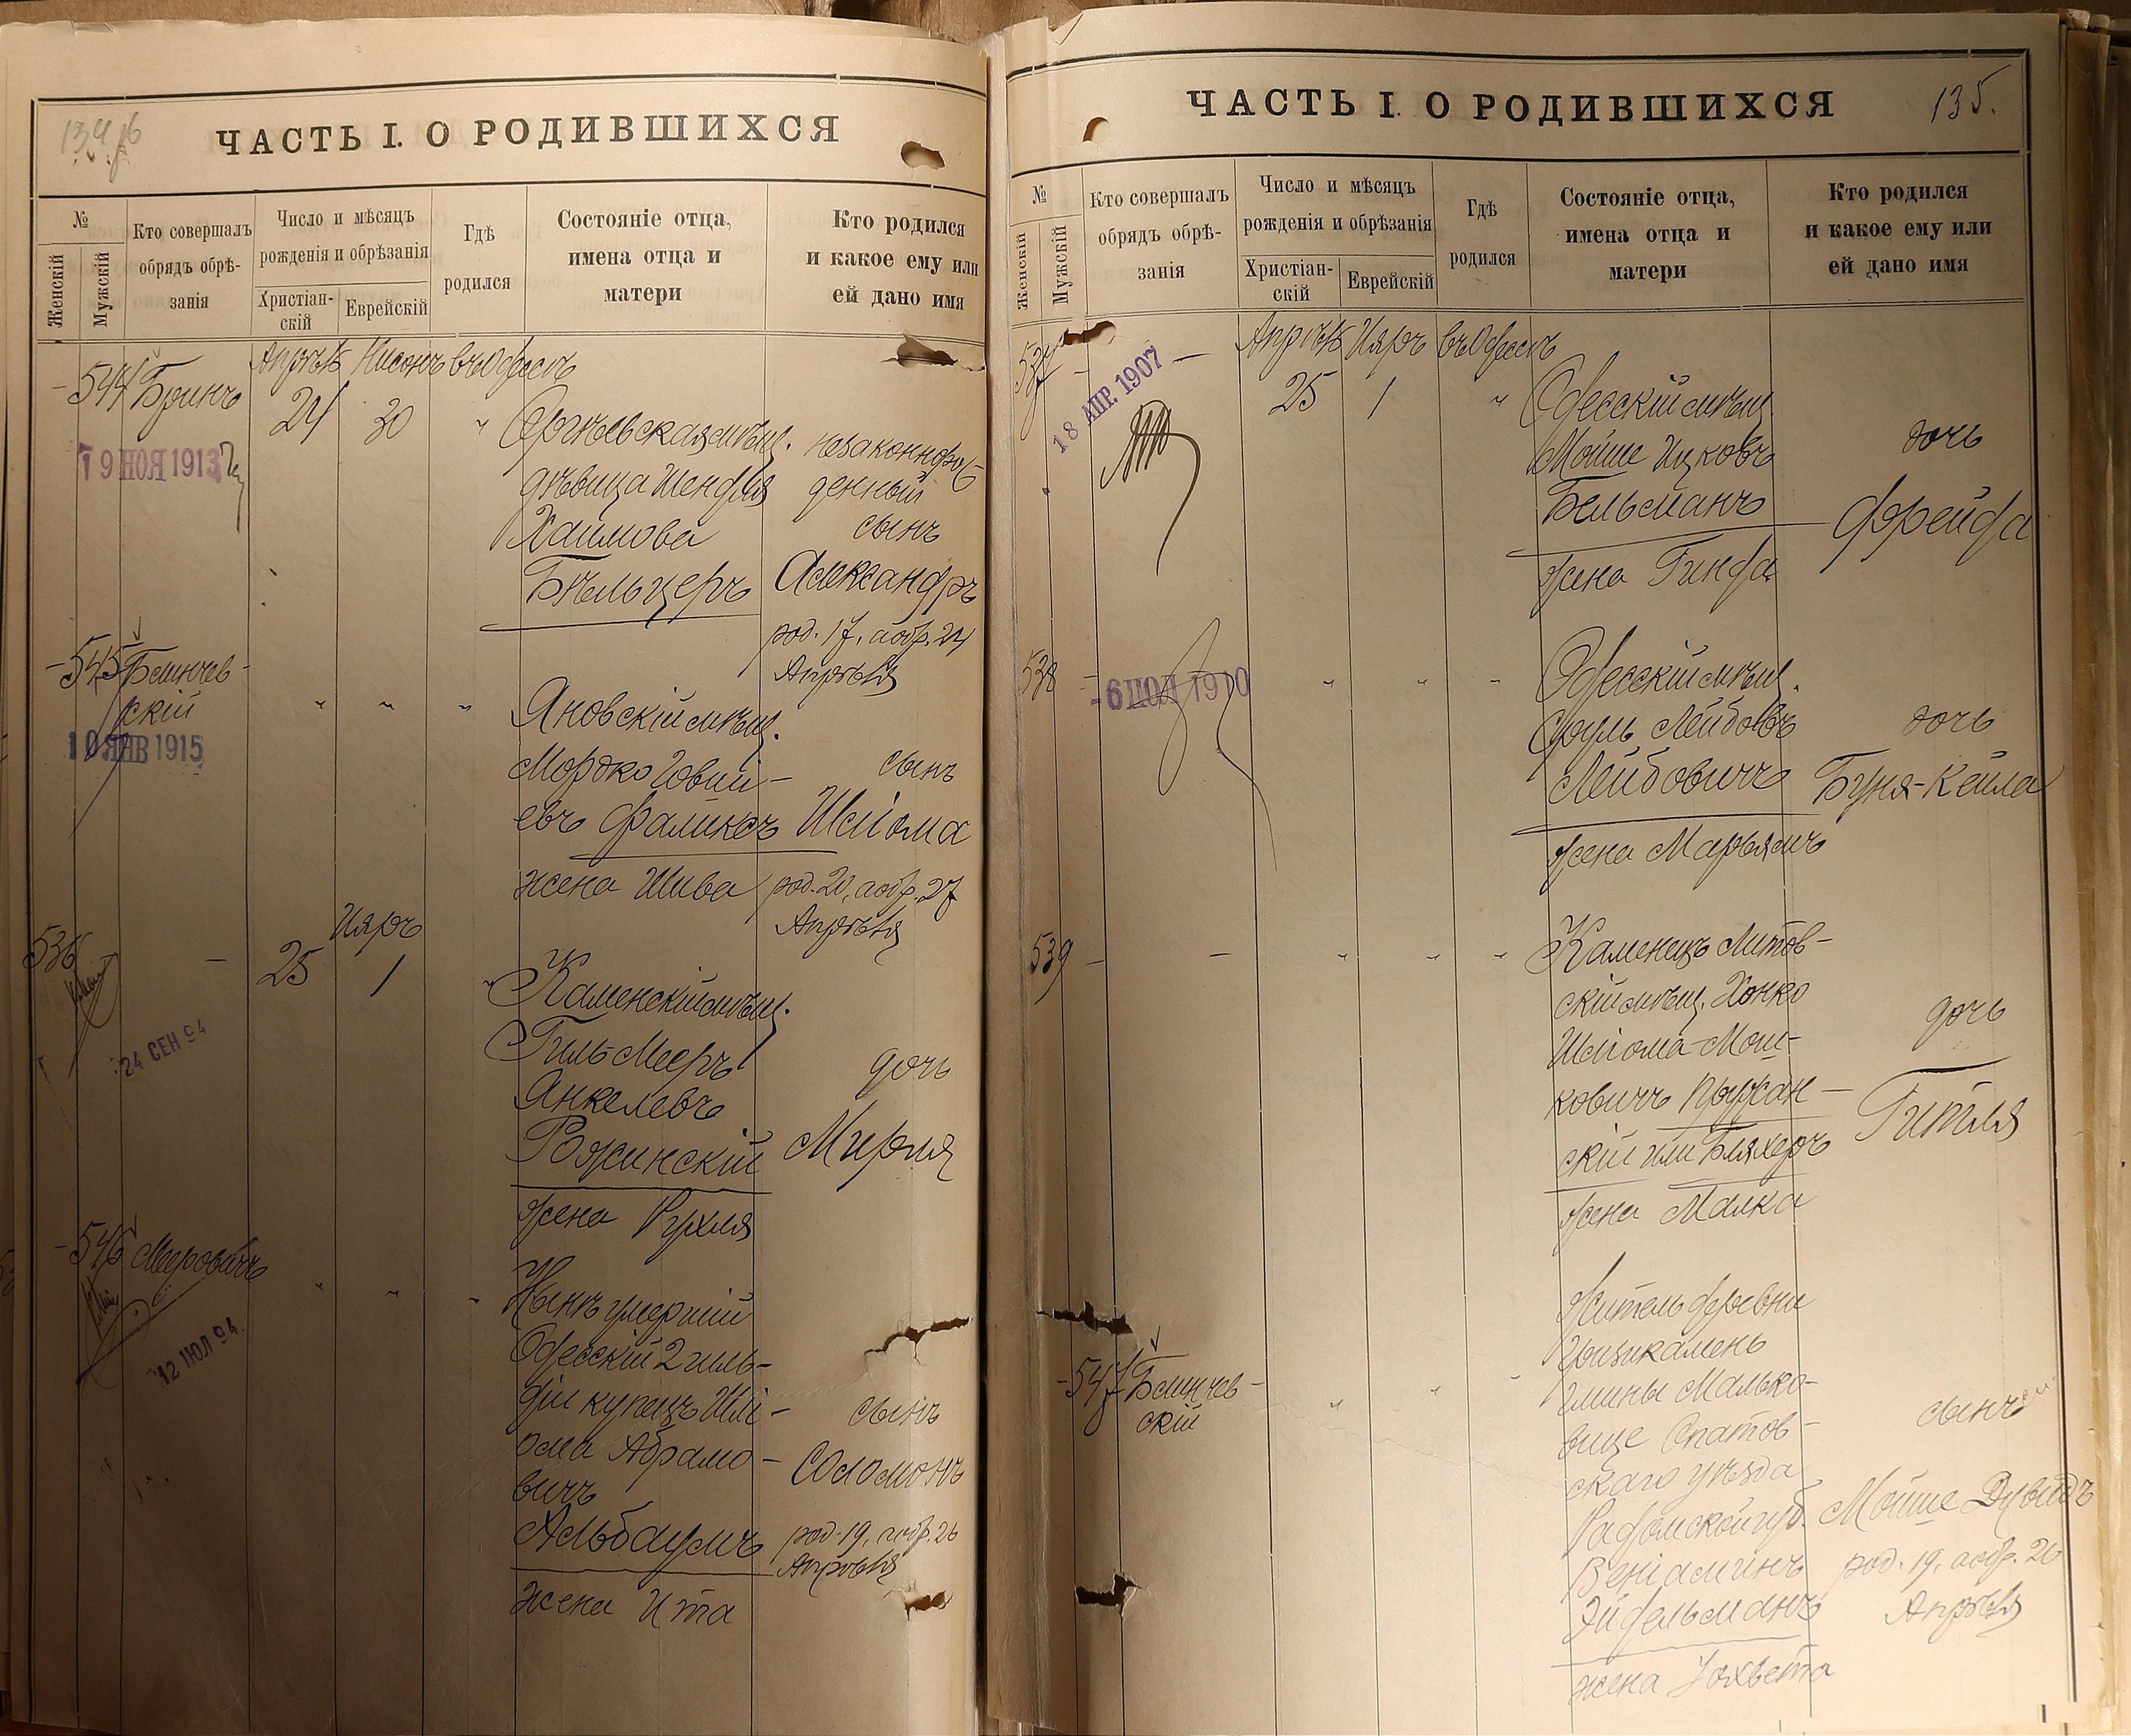 ЧАСТЬ I. О РОДИВШИХСЯ
№
Женскій
Мужскій
Кто совершалъ
обрядъ обрѣ-
занія
Число и мѣсяцъ
рожденія и обрѣзанія
Христіан-
скій
Еврейскій
Гдѣ
родился
Состояніе отца,
имена отца и
матери
Кто родился
и какое ему или
ей дано имя
Апрѣль Нисонъ въ Одессѣ
544 Бринъ
24 30 "
19 НОЯ 1913
Оргѣевская мѣщ.
дѣвица Шендля
Хаимова
Бѣльцеръ
незаконнорож-
денный
сынъ
Александръ
род. 17, а обр. 24
Апрѣля
545 Блинчев-
скій
10 ЯНВ 1915
" " "
Яновскій мѣщ.
Мордко Іовій-
евъ Фаликсъ
жена Шива
сынъ
Шліома
род. 20, а обр. 27
Апрѣля
Ияръ
536 — 25 1 "
24 СЕН 94
Каменскій мѣщ.
Гиль Мееръ
Янкелевъ
Рожинскій
жена Рухля
дочь
Мирля
546 Мееровичъ
12 ІЮЛ 94
" " "
Нынѣ умершій
Одесскій 2 гиль-
діи купецъ Шлі-
ома Абрамо-
вичъ
Альбаумъ
жена Ита
сынъ
Соломонъ
род. 19, а обр. 26
Апрѣля
ЧАСТЬ I. О РОДИВШИХСЯ
135.
№
Женскій
Мужскій
Кто совершалъ
обрядъ обрѣ-
занія
Число и мѣсяцъ
рожденія и обрѣзанія
Христіан-
скій
Еврейскій
Гдѣ
родился
Состояніе отца,
имена отца и
матери
Кто родился
и какое ему или
ей дано имя
Апрѣль Ияръ въ Одессѣ
537 — 25 1 "
18 АПР. 1907
Одесскій мѣщ.
Мойше Ицковъ
Бельманъ
жена Гинда
дочь
Фрейда
538 - " " "
-6 ІЮЛ 1910
Одесскій мѣщ.
Сруль Лейбовъ
Лейбовичъ
жена Марьямъ
дочь
Буня-Кейла
539 - — " " "
Каменецъ Литов-
скій мѣщ. Хонко
Шліома Мош-
ковичъ Пружан-
скій или Бляхеръ
жена Малка
дочь
Гитля
547 Блинчев-
скій
" " "
Житель деревни
гмины Малько-
вице Опатов-
скаго уѣзда
Радомской губ.
Веніаминъ
Эйдельманъ
жена Іохвета
сынъ
Мойше Дувидъ
род. 19, а обр. 26
Апрѣля